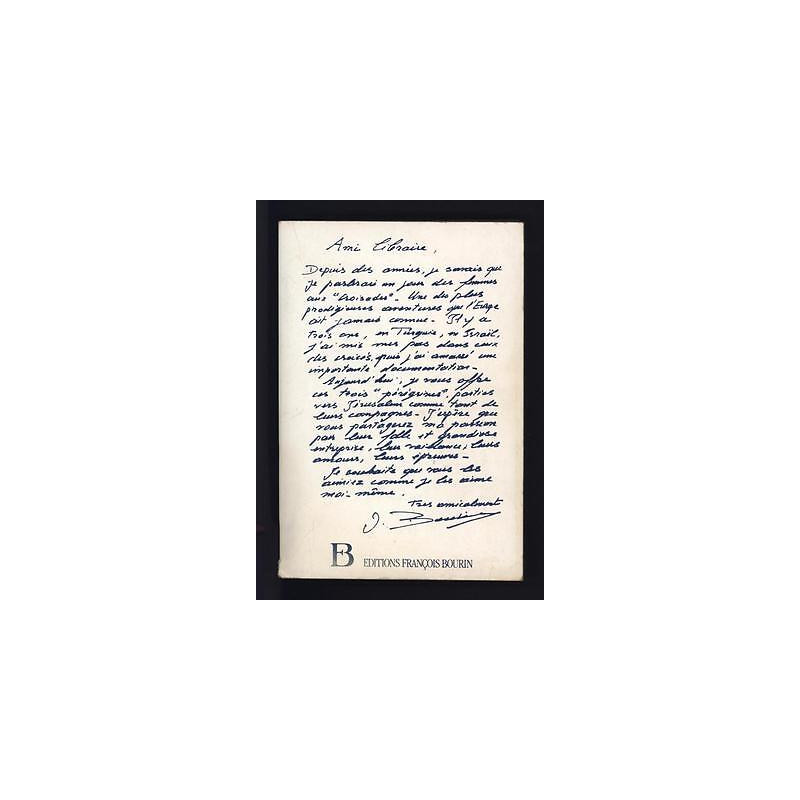 Ami libraire,
Depuis des années, je savais que
je parlerai un jour des femmes
aux "Croisades" - Une des plus
prodigieuses aventures que l'Europe
ait jamais connue - Il y a
trois ans, en Turquie, en Israël,
j'ai mis mes pas dans ceux
des croisés, puis j'ai amassé une
importante documentation -
Aujourd'hui, je vous offre
ces trois "pérégrines", parties
vers Jérusalem comme tant de
leurs compagnes - J'espère que
vous partagerez ma passion
pour leur folle et grandiose
entreprise, leur vaillance, leurs
amours, leurs épreuves -
Je souhaite que vous les
aimiez comme je les aime
moi-même.
Très amicalement
J. Bourin
EDITIONS FRANÇOIS BOURIN